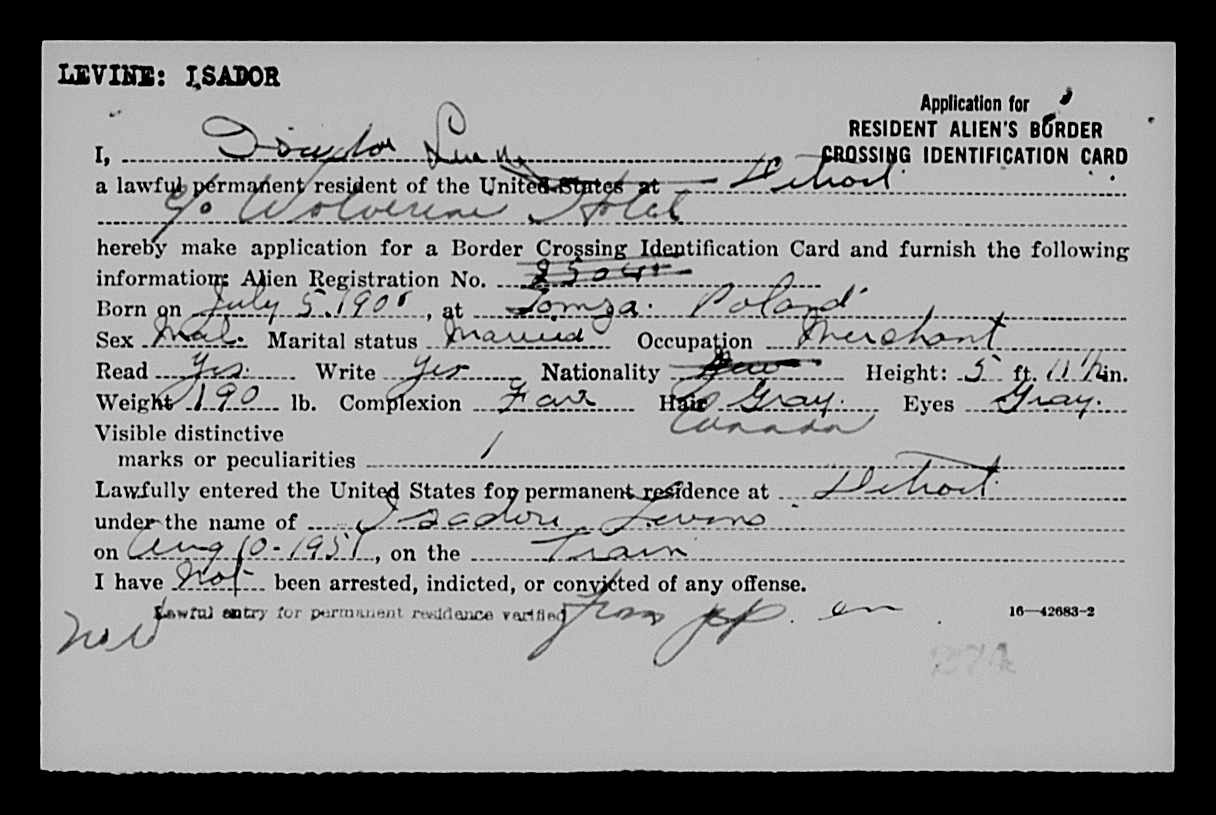 LEVINE: ISADOR
Application for
RESIDENT ALIEN'S BORDER
CROSSING IDENTIFICATION CARD
I, Isador
a lawful permanent resident of the United States at Detroit
c/o Wolverine Hotel
hereby make application for a Border Crossing Identification Card and furnish the following
information: Alien Registration No.
Born on July 5, , at Lomza. Poland
Sex Male. Marital status Married Occupation Merchant
Read Yes. Write Yes Nationality Height: 5 ft. 11 1/2 in.
Weight 190 lb. Complexion Fair Hair Gray. Eyes Gray.
Canada
Visible distinctive
marks or peculiarities /
Lawfully entered the United States for permanent residence at Detroit
under the name of Isadore Levine
on Aug 10-1951, on the Train
I have Not been arrested, indicted, or convicted of any offense.
Lawful entry for permanent residence verified from
16—42683-2